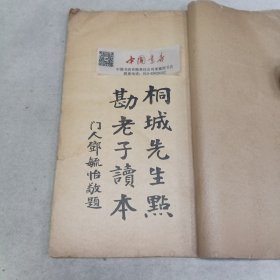 中國書店
桐城先生點
勘老子讀本
門人鄧毓怡敬題